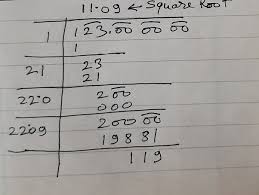 11.09 ← Square Root
1 | 1 23.00 00 00
1
21 | 23
21
220 | 200
000
2209 | 20000
19881
119